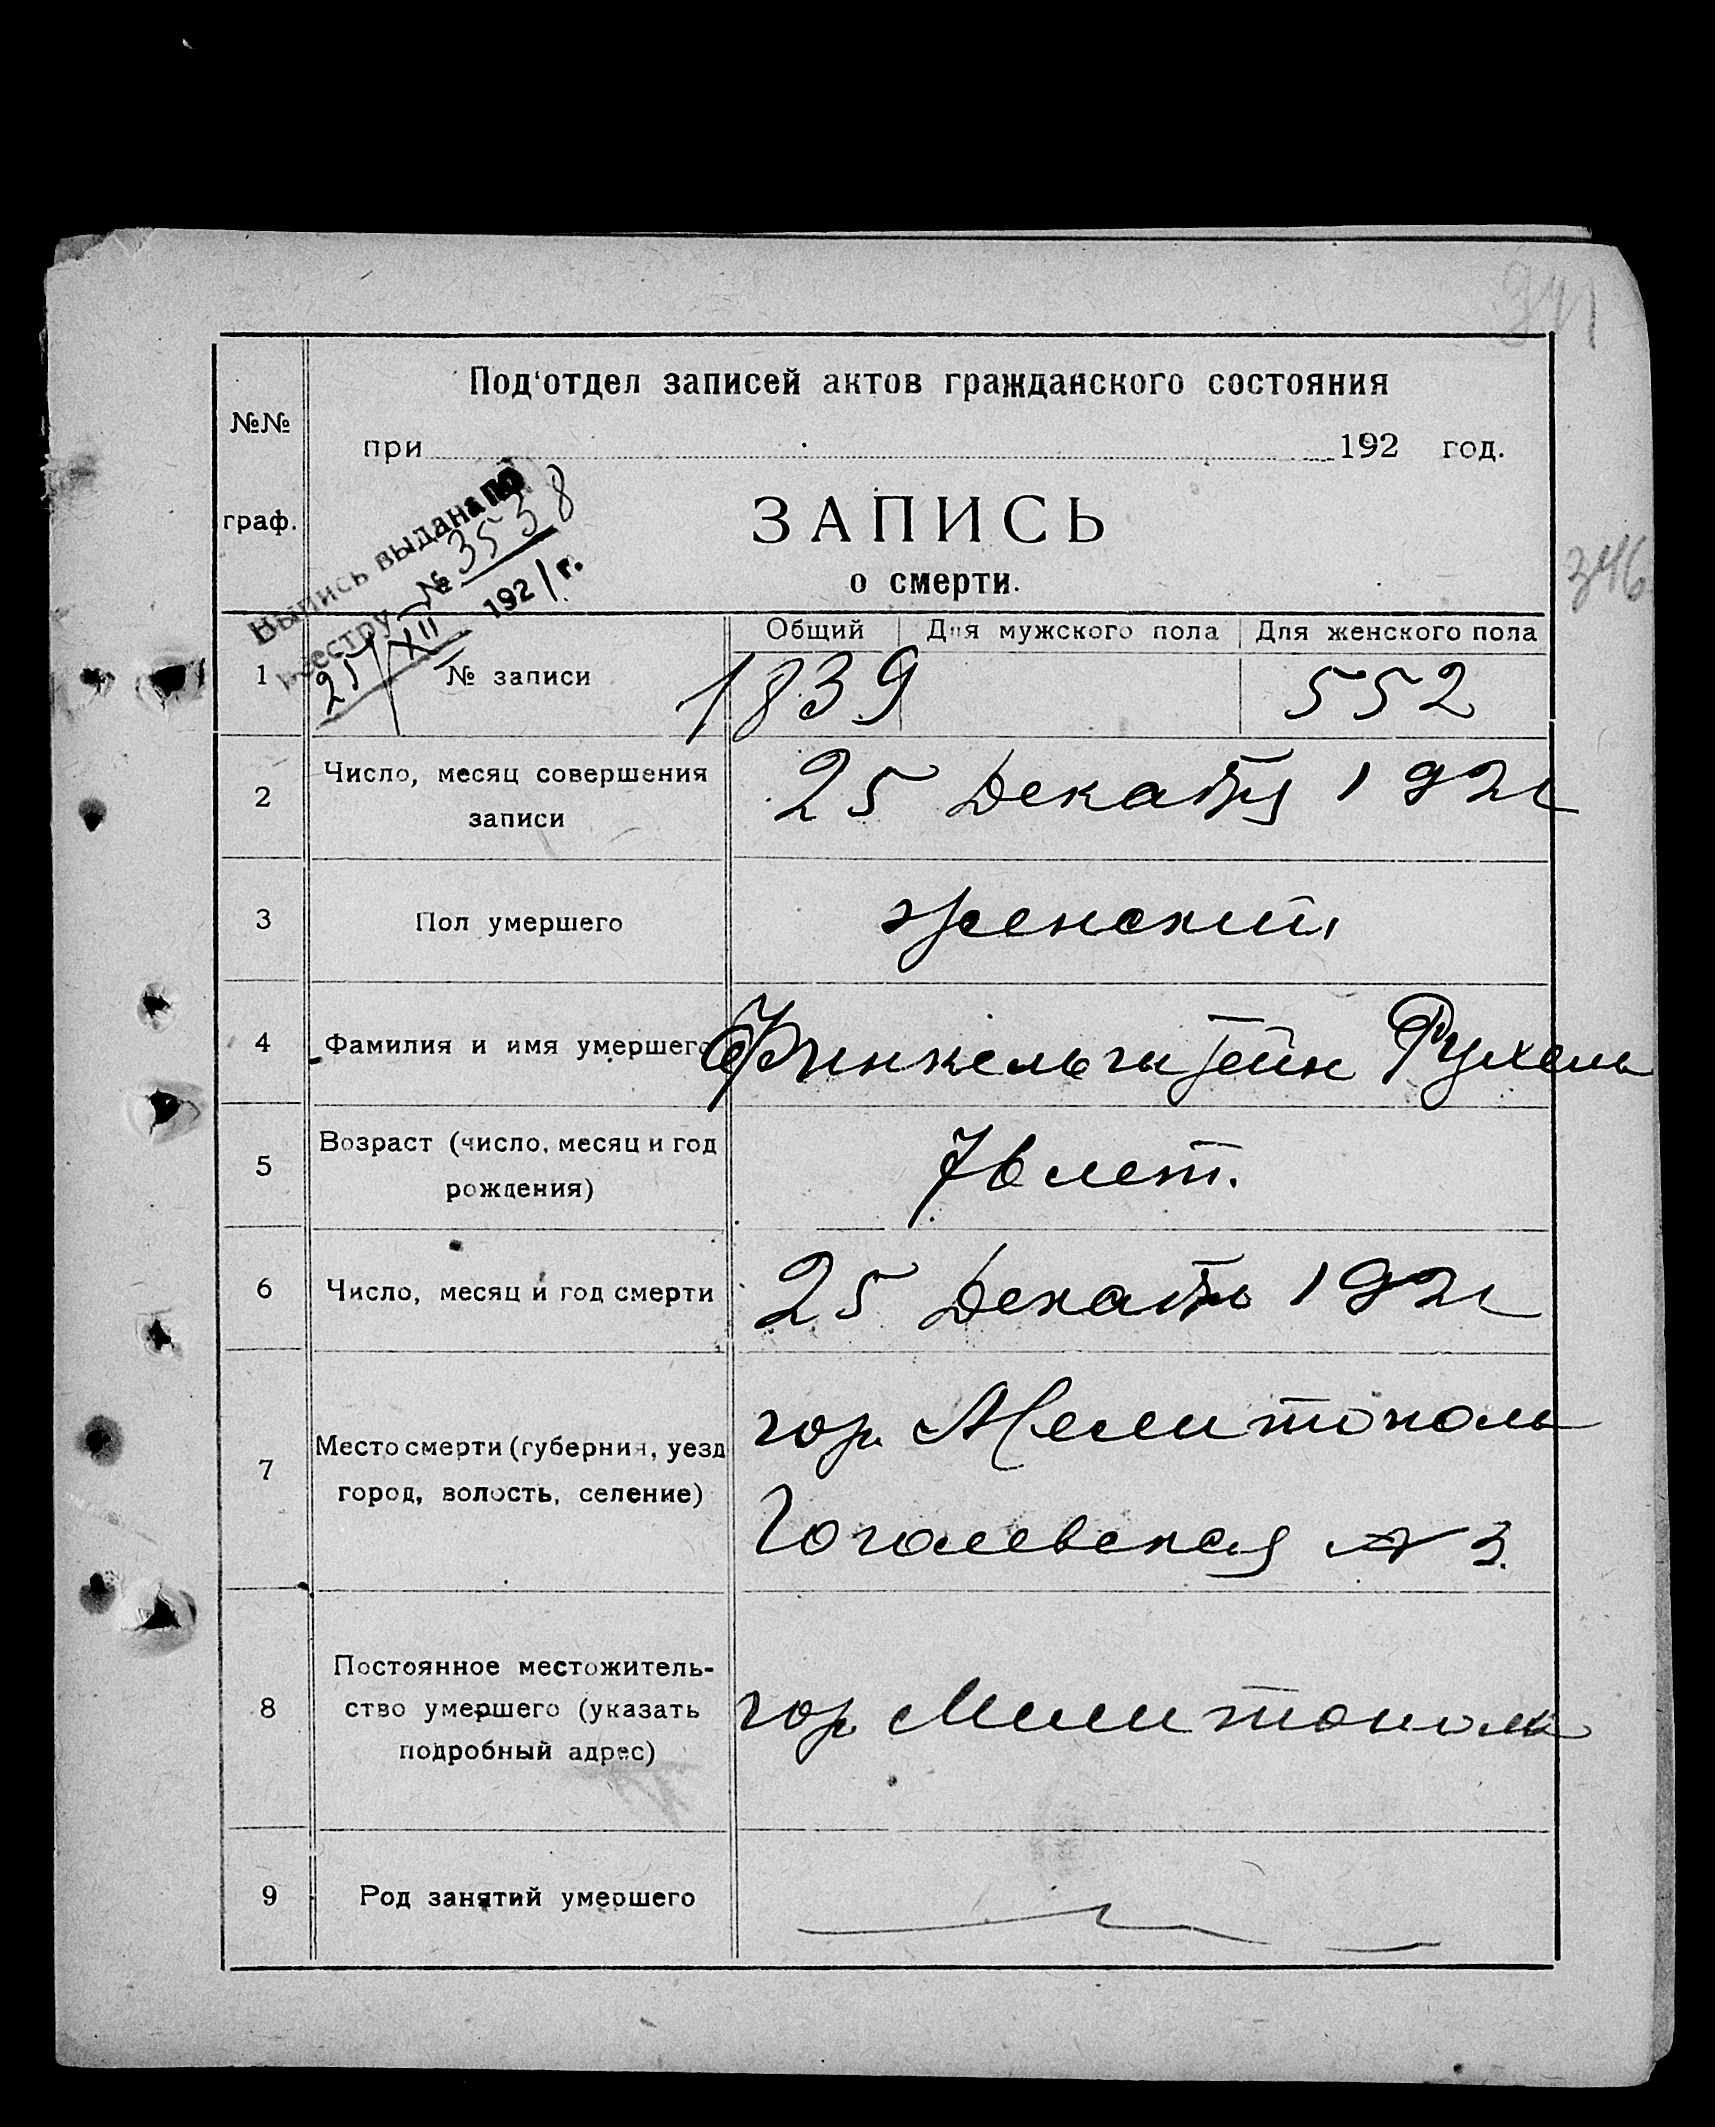 341
Под'отдел записей актов гражданского состояния
№№
при 192 год.
граф.
ЗАПИСЬ
о смерти.
346
Выпись выдана по
реестру № 3538
25/XII 1921 г.
Общий Для мужского пола Для женского пола
1 № записи 1839 552
2 Число, месяц совершения записи 25 Декабря 1921
3 Пол умершего женский
4 Фамилия и имя умершего Финкельштейн Рухель
5 Возраст (число, месяц и год рождения) 76 лет.
6 Число, месяц и год смерти 25 Декабрь 1921
7 Место смерти (губерния, уезд город, волость, селение) гор. Мелитополь
Гоголевская № 3.
8 Постоянное местожитель-
ство умершего (указать гор. Мелитополь
подробный адрес)
9 Род занятий умершего